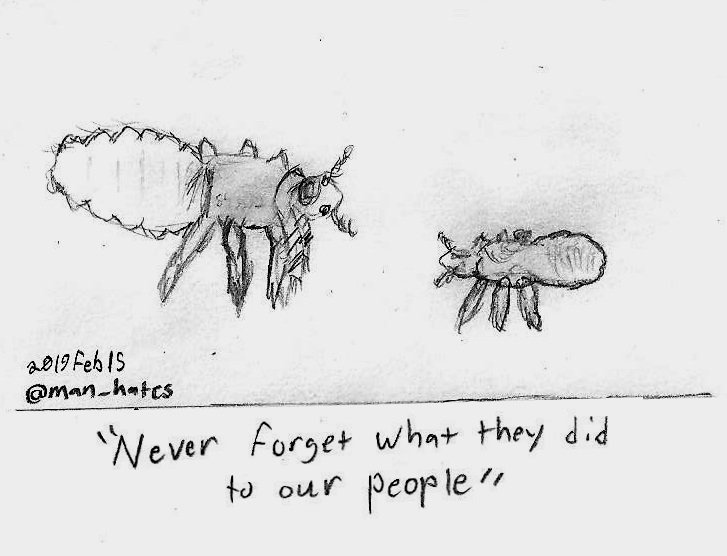 2019Feb15
@man_hates
“Never forget what they did
to our people”